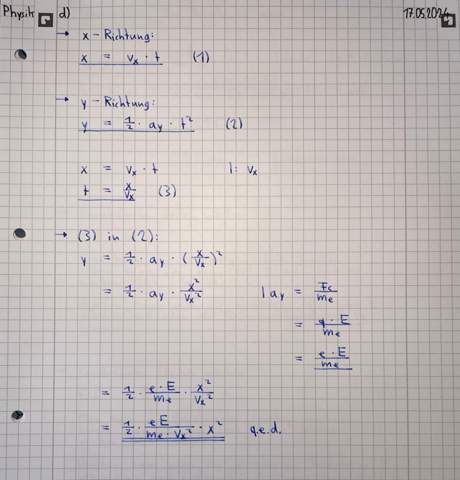 Physik d) 17.05.2024
→ x-Richtung:
x = vₓ · t (1)
→ y-Richtung:
y = 1/2 · a_y · t² (2)
x = vₓ · t |: vₓ
t = x/vₓ (3)
→ (3) in (2):
y = 1/2 · a_y · (x/vₓ)²
= 1/2 · a_y · x²/vₓ² | a_y = F_C/m_e
= q · E/m_e
= e · E/m_e
= 1/2 · e · E/m_e · x²/vₓ²
= 1/2 · eE/(m_e · vₓ²) · x² q.e.d.